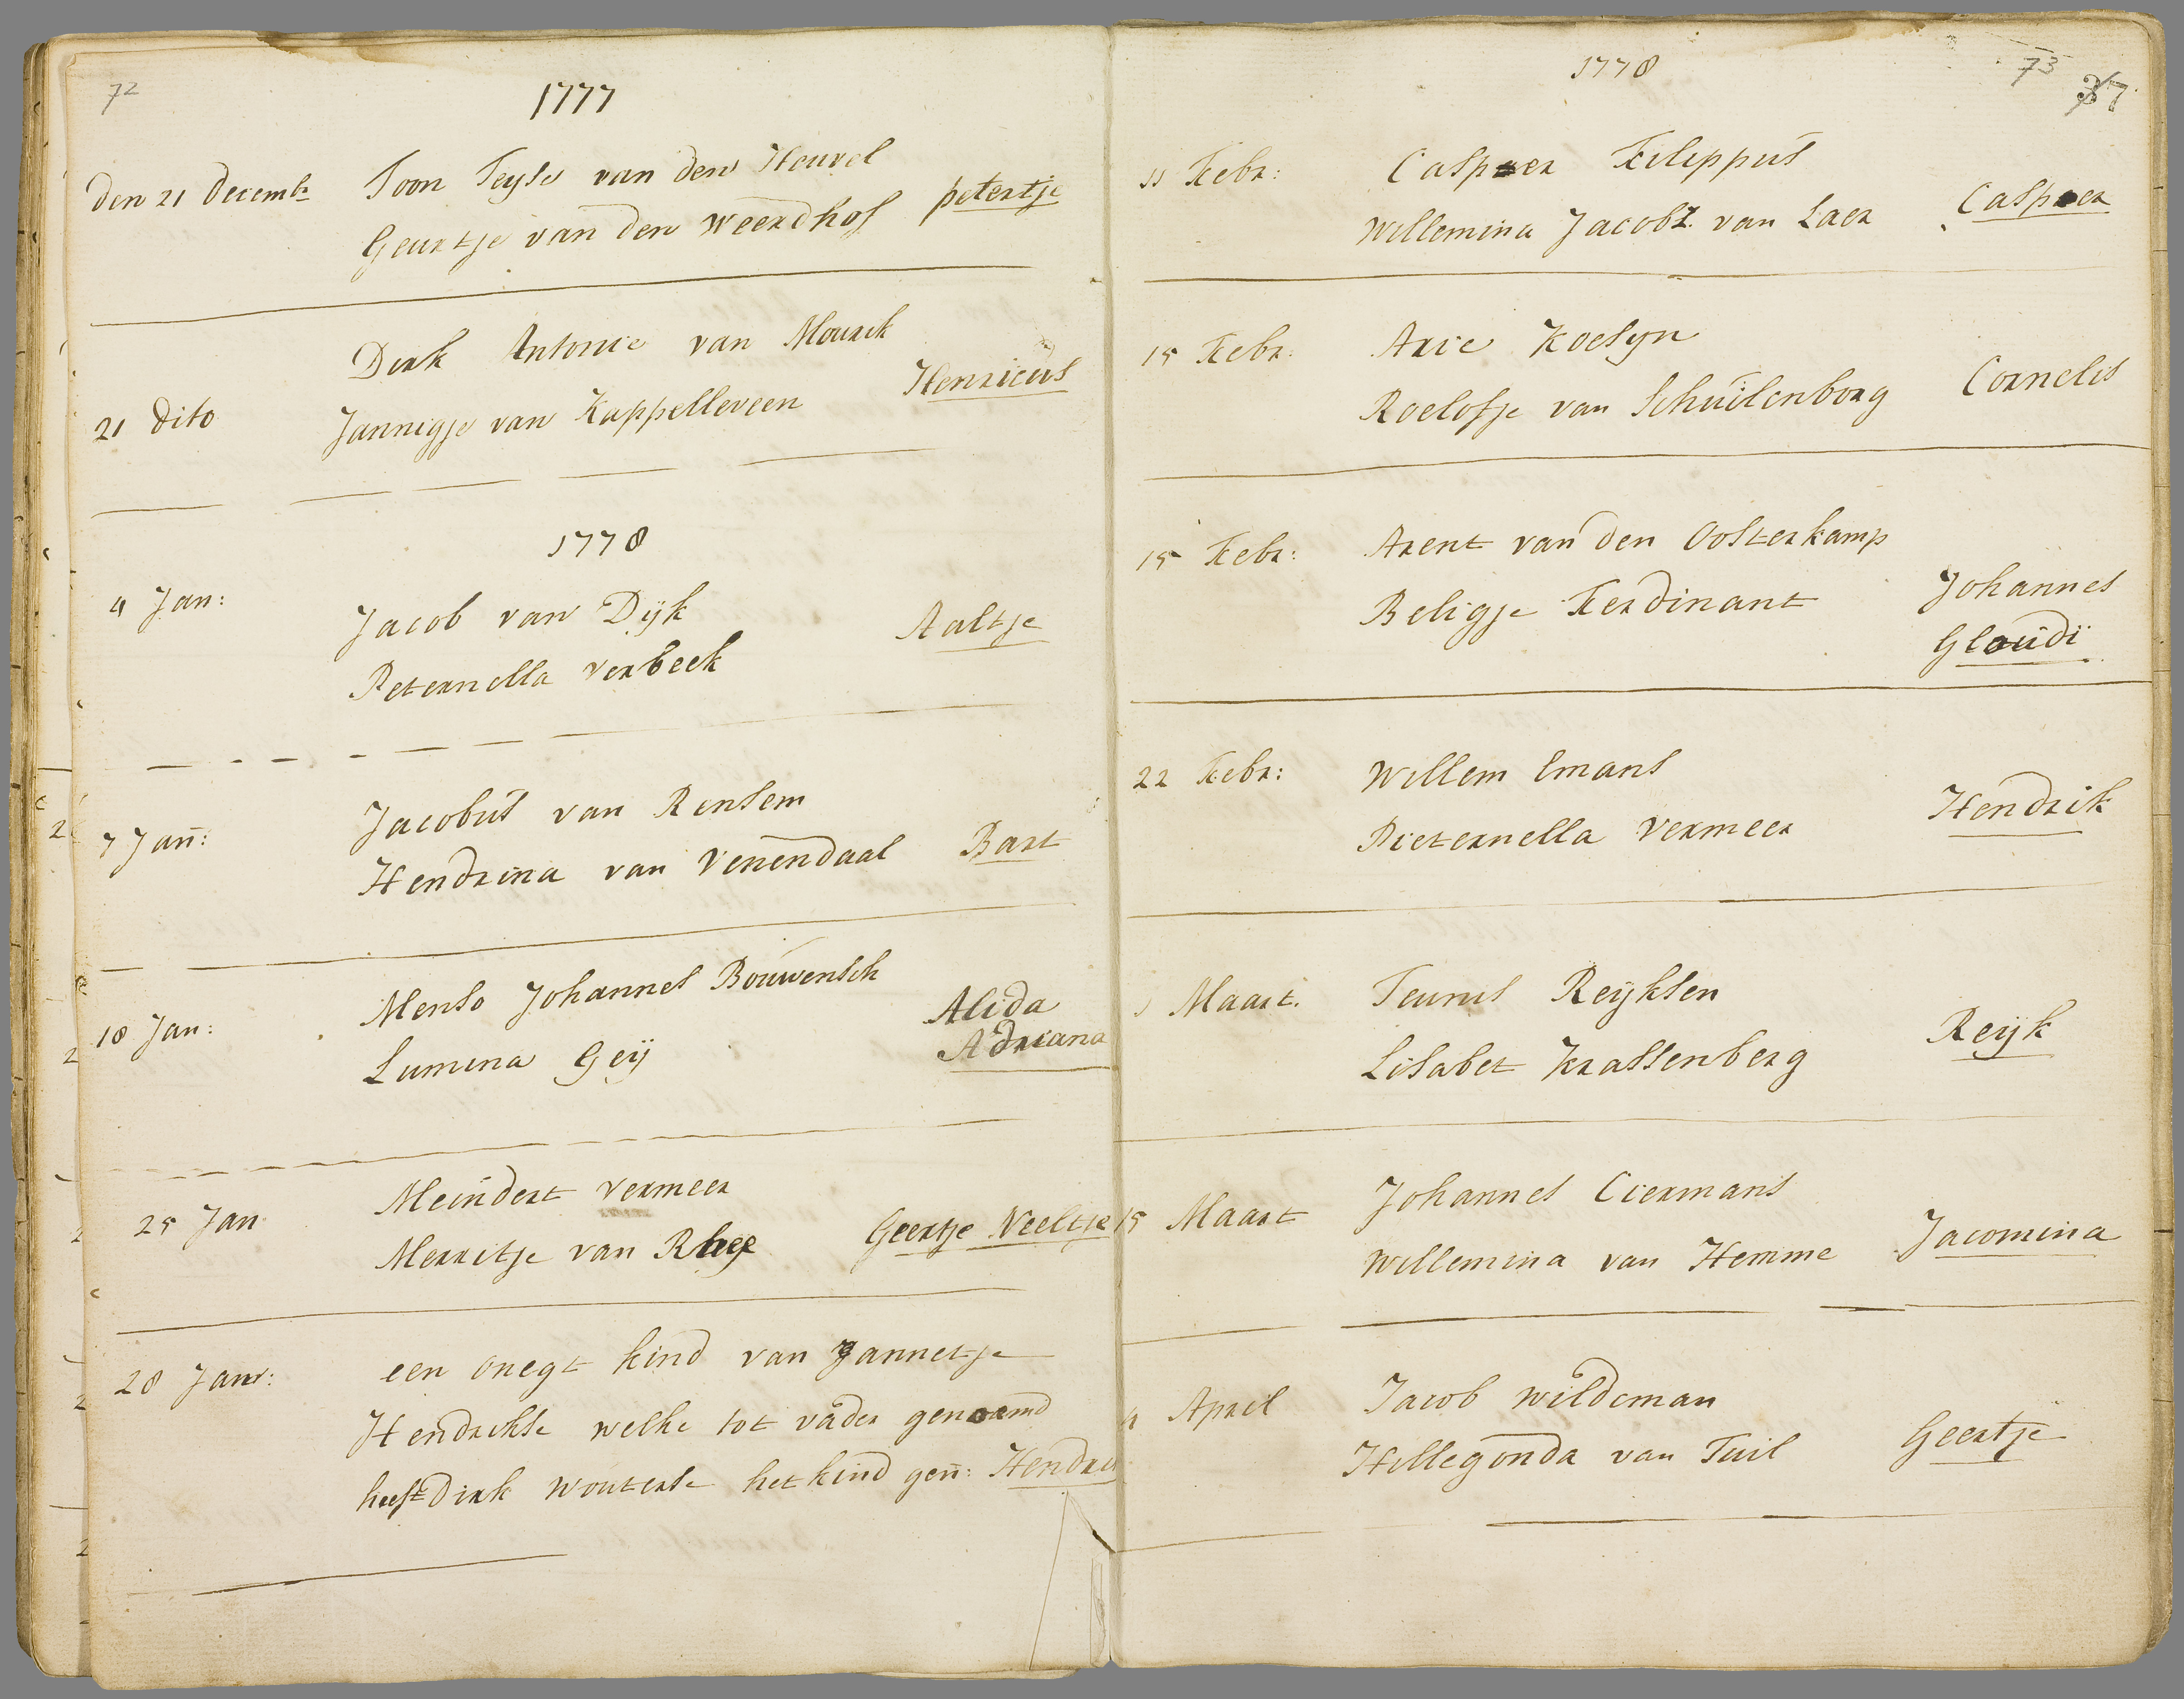 72
1777
den 21 decemb:
Toon Teyse van den Heuvel
Geurtje van den weerdhof
petertje
Dirk Antonie van Mourik
Henricus
21 dito
Jannigje van Kappelleveen
1778
4 Jan:
Jacob van Dijk
Aaltje
Peternella verbeek
Jacobus van Rensem
7 Jan:
Hendrina van Venendaal
Bart
Menso Johannes Bouwensch
Alida
18 Jan:
Adriana
Lumina Geij
25 Jan
Meindert vermeer
Merritje van Rhee
Geertje Neeltje
28 Jan:
een onegt kind van Jannetje
Hendrikse welke tot vader genoemd
heeft Dirk Wouterse het kind gen: Hendri
1778
73
37
11 Febr:
Casper Filippus
Willemina Jacobz. van Laer
Casper
15 Febr:
Arie Koesyn
Roelofje van Schuilenborg
Cornelis
15 Febr:
Arent van den Oosterkamp
Beligje Ferdinant
Johannes
Gloudi
22 Febr:
Willem Emans
Pieternella Vermeer
Hendrik
1 Maart.
Teunis Reijksen
Lisabet Krassenberg
Reijk
15 Maart
Johannes Ciermans
Willemina van Hemme
Jacomina
April
Jacob wildeman
Hillegonda van Tuil
Geertje